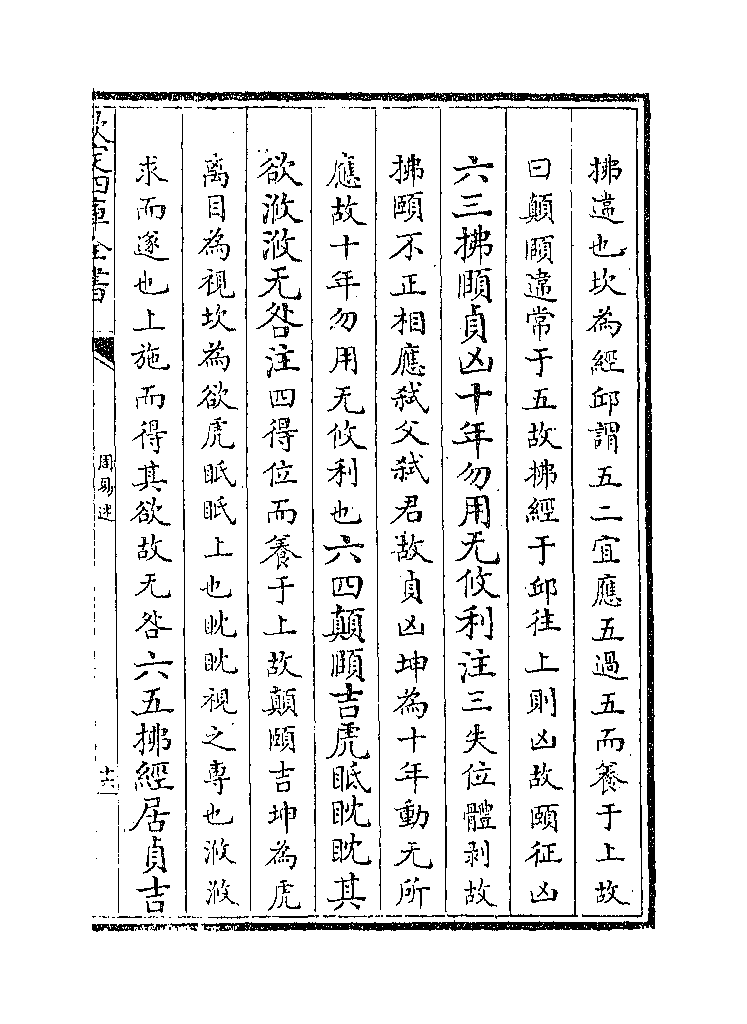 拂違也坎為經邱謂五二宜應五過五而養于上故
曰顛頤違常于五故拂經于邱往上則凶故頤征凶
六三拂頤貞凶十年勿用无攸利注三失位體剥故
拂頤不正相應弑父弑君故貞凶坤為十年動无所
應故十年勿用无攸利也六四顛頤吉虎眂眈眈其
欲浟浟无咎注四得位而養于上故顛頤吉坤為虎
离目為視坎為欲虎眂眂上也眈眈視之專也浟浟
求而遂也上施而得其欲故无咎六五拂經居貞吉
欽定四庫全書
周易述
十六